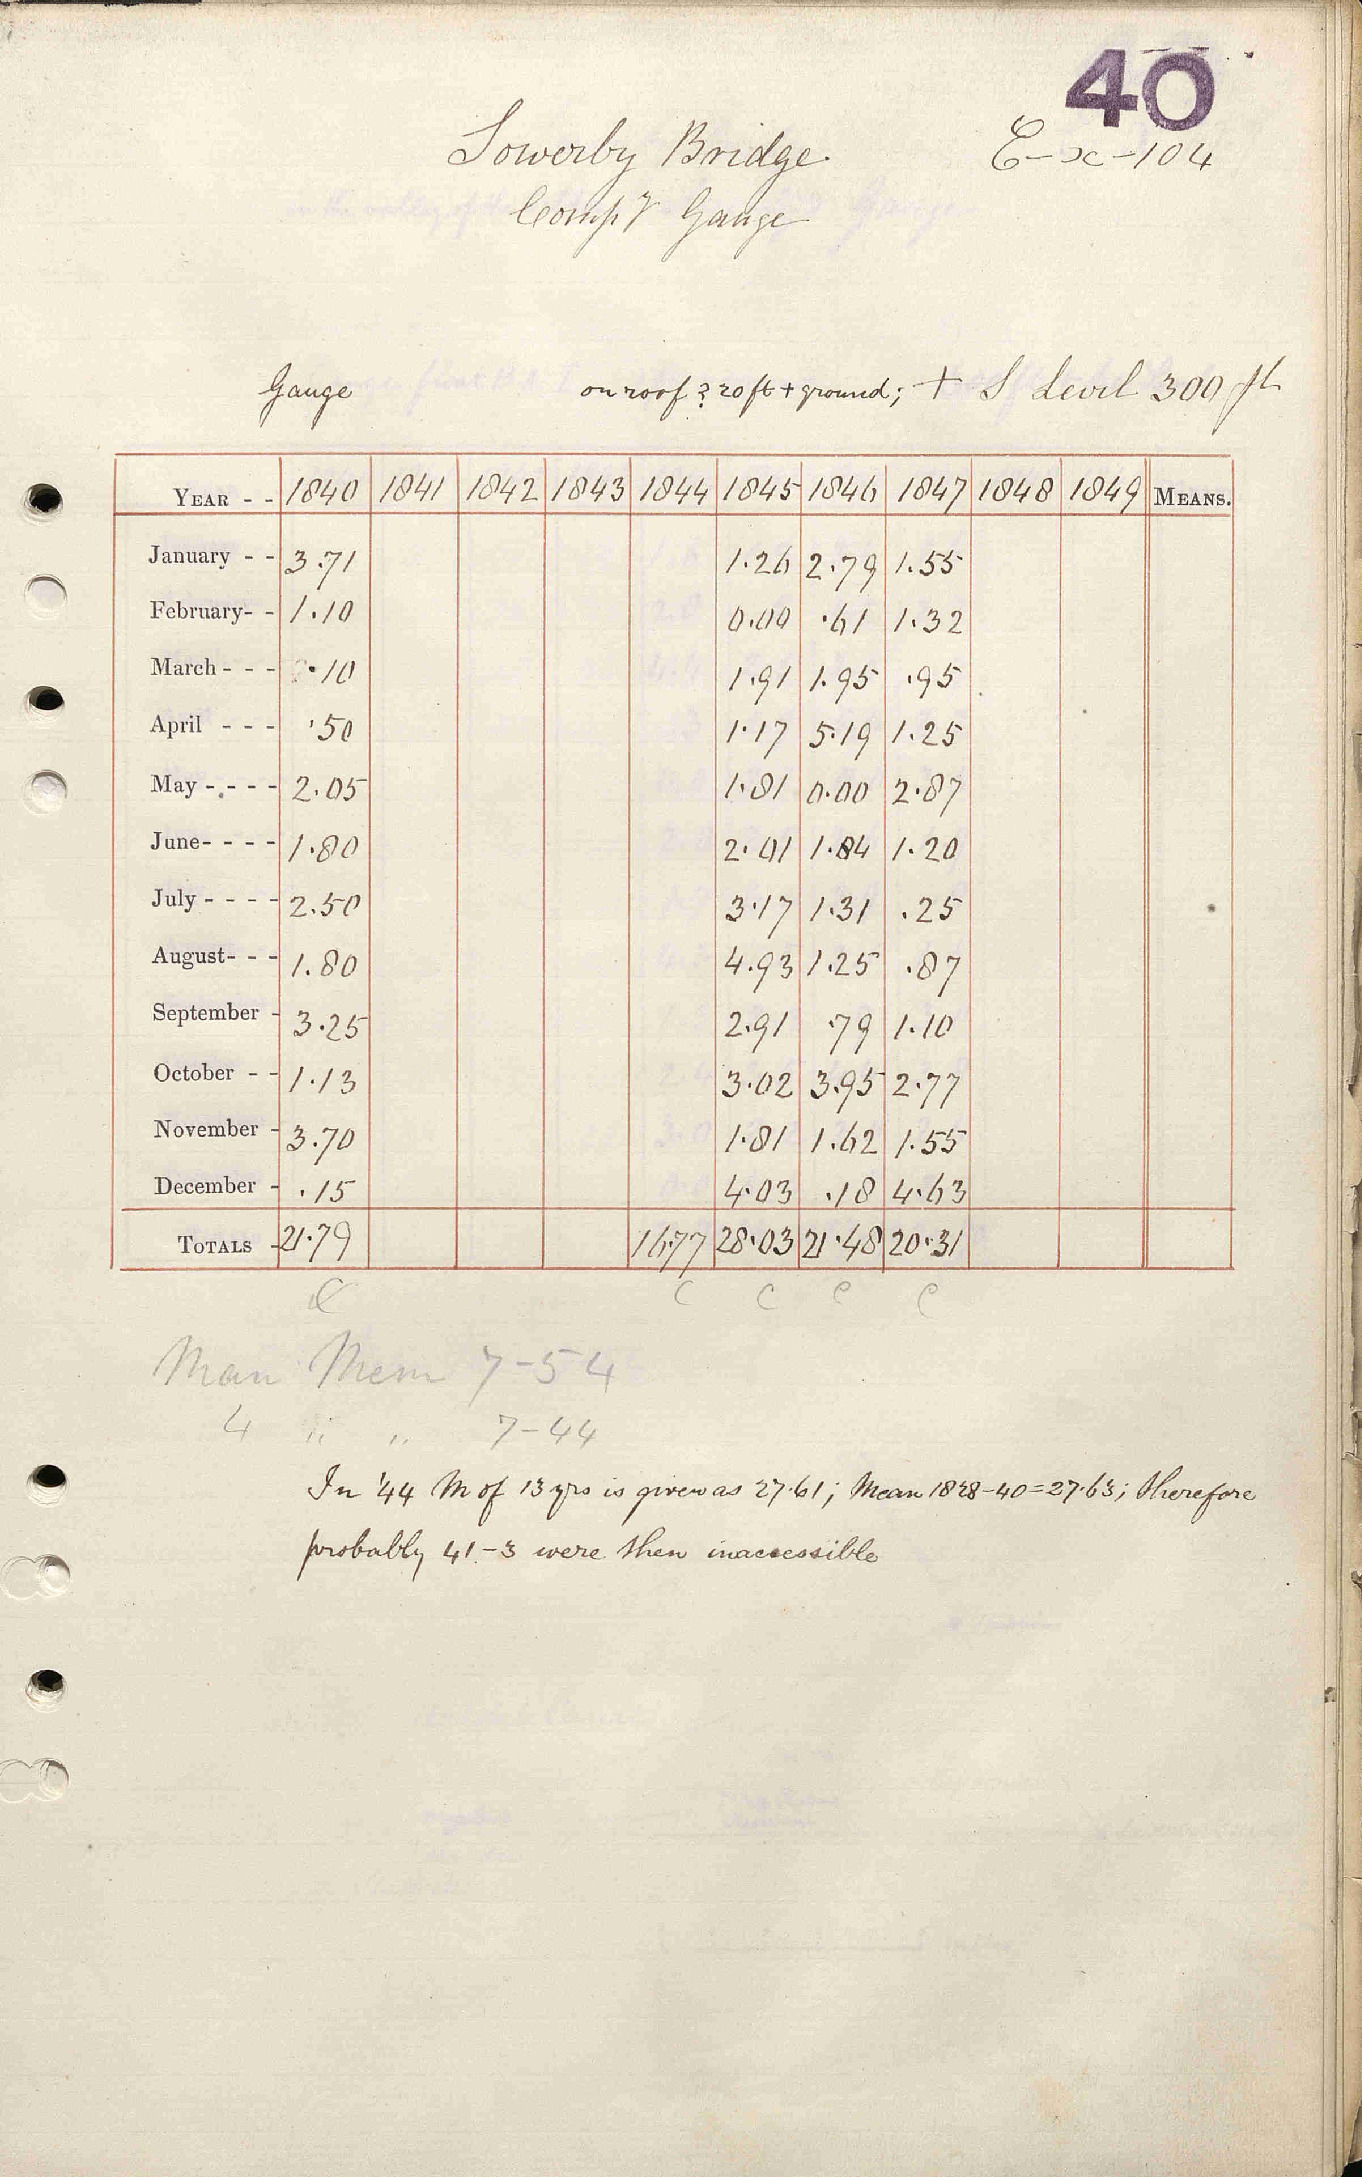 40
Sowerby Bridge. E-x-104
Comp<sup>y</sup> Gauge
Gauge on roof ? 20 ft + ground; + S Level 300 ft
YEAR - - 1840 1841 1842 1843 1844 1845 1846 1847 1848 1849 MEANS.
January - - 3.71 1.26 2.79 1.55
February - - 1.10 0.00 .61 1.32
March - - - .10 1.91 1.95 .95
April - - - .50 1.17 5.19 1.25
May - - - - 2.05 1.81 0.00 2.87
June - - - - 1.80 2.01 1.84 1.20
July - - - - 2.50 3.17 1.31 .25
August - - - 1.80 4.93 1.25 .87
September - 3.25 2.91 .79 1.10
October - - 1.13 3.02 3.95 2.77
November - 3.70 1.81 1.62 1.55
December - .15 4.03 .18 4.63
TOTALS - 21.79 16.77 28.03 21.48 20.31
C C C C C
Man Mem 7-54
4 " " 7-44
In '44 M of 13 yrs is given as 27.61; Mean 1828-40=27.63; therefore
probably 41-3 were then inaccessible